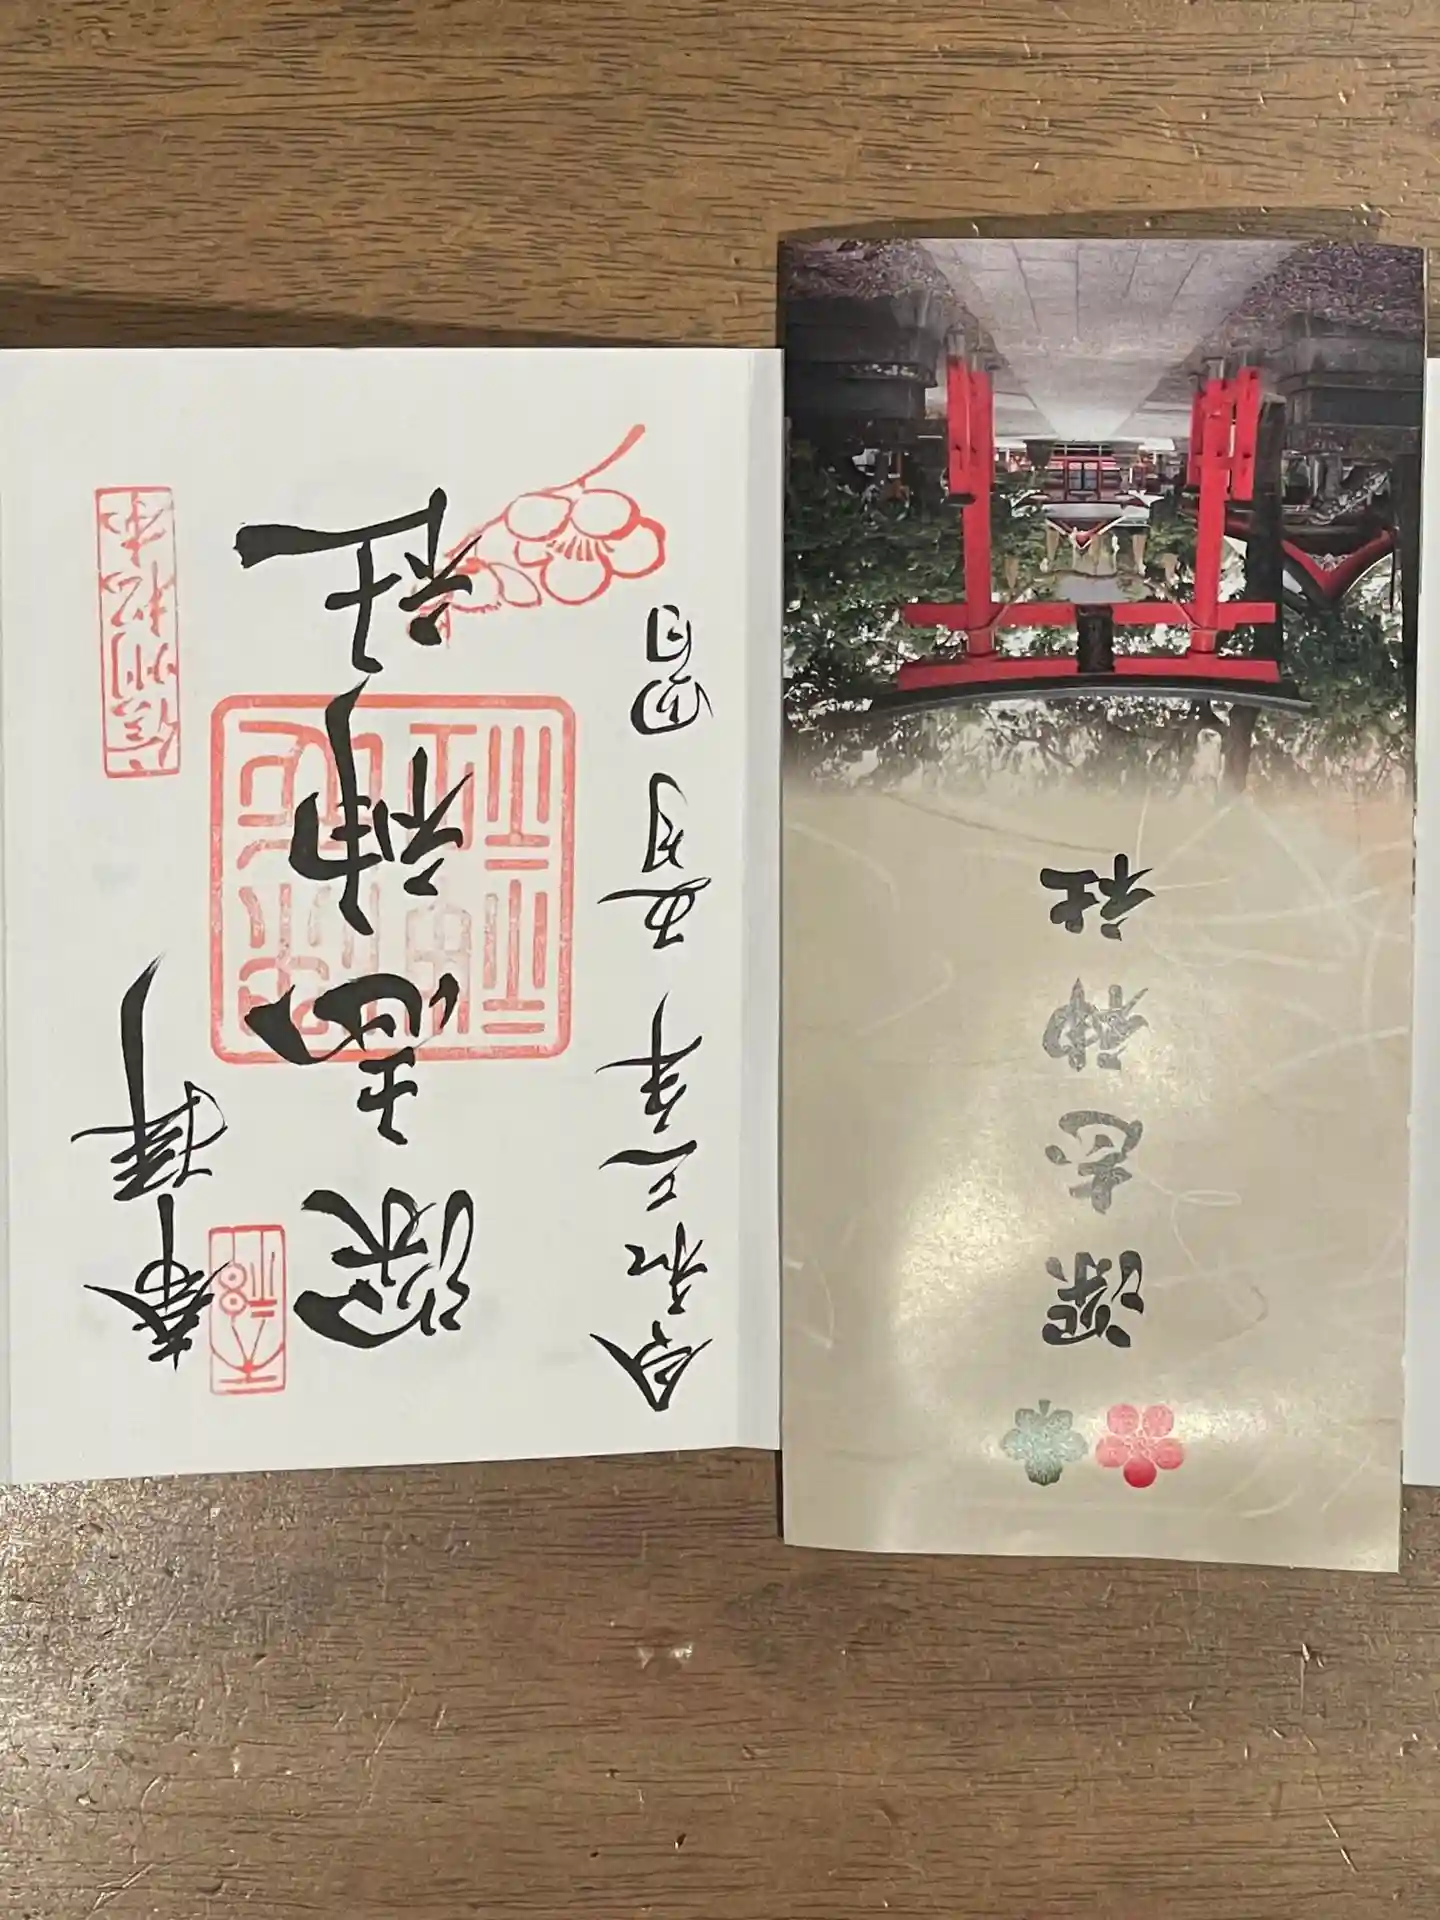 奉拝
信州松本
深志神社
令和三年五月四日
深志神社